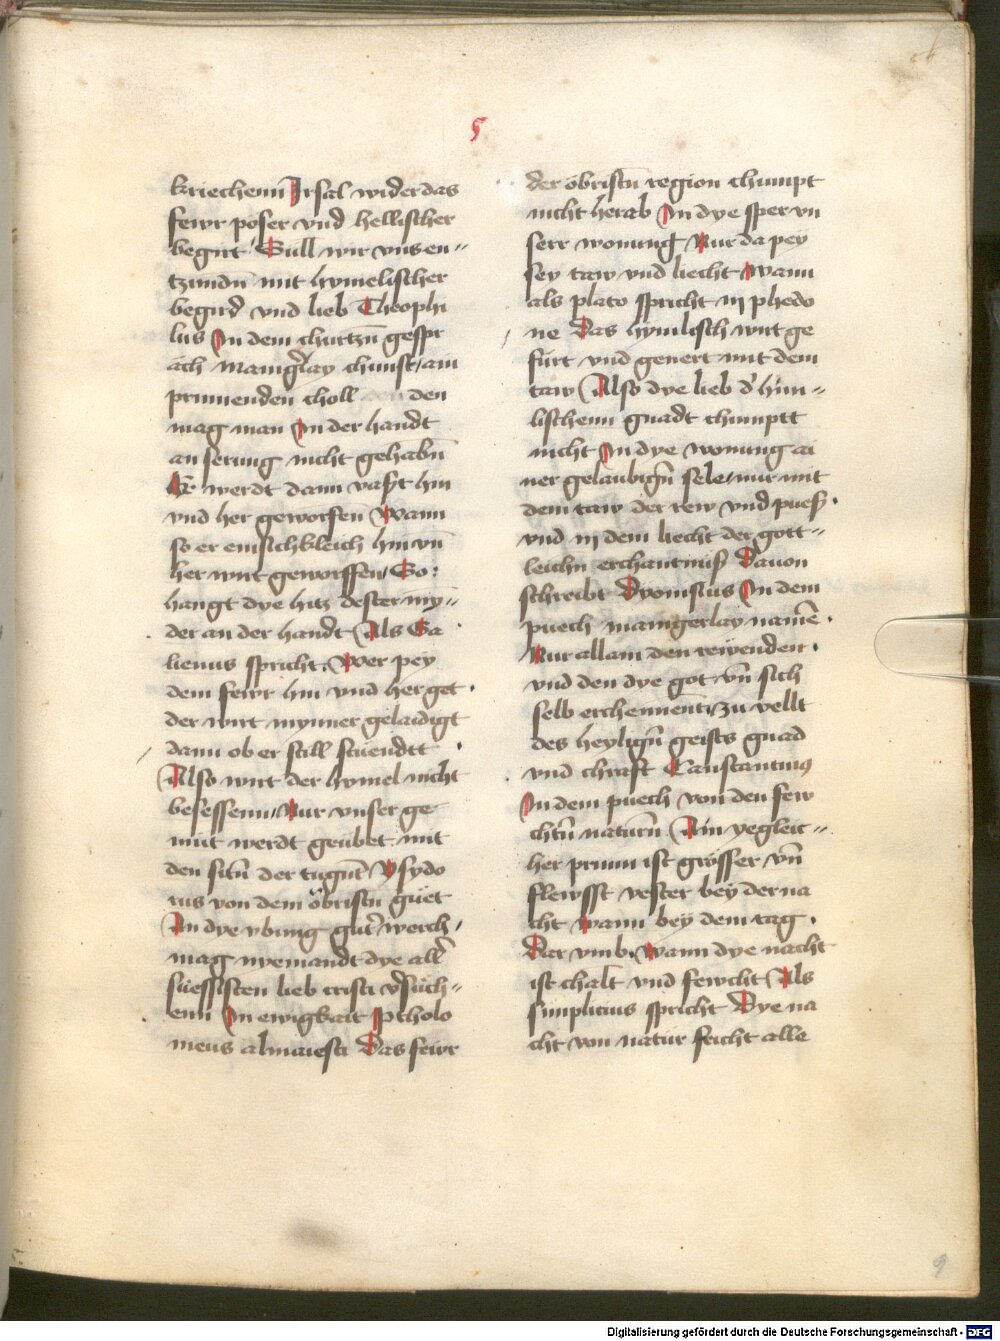 5
kriechenn Irsal wider das
fewr poser vnd hellischer
begirt Süll wir vns en-
tzundn̄ mit hymelischer
begird vnd lieb Theophi
lus In dem churtzn̄ gespr
äch manig̃lay chunst / ain
prinnenden choll den
mag man In der handt
an serung nicht gehabn̄
Er werdt dann vasst hin
vnd her geworfen Wann
so er emsichkleich hin vn̄
her wirt geworffen So
hangt dye hitz dester my-
der an der handt Als Ga
lienus spricht Wer pey
dem fewr hin vnd her get
der wirt mynner gelaidigt
dann ob er still stüendtt
Also wirt der hymel nicht
besessenn Nur vnser ge
müt werdt geübet mit
den sitn̄ der tugnt̄ Ysydo
rus von dem öbristn̄ güet
An dye vbung gut̃ werch
mag nyemandt dye all̃
süessisten lieb cristi v̾süch-
enn In ewigkait Ptholo
meus almaiesti Das fewr
der öbristn̄ region chumpt
nicht herab In dye sper vn
serr wonung Nur da pey
sey taw vnd liecht Wann
als plato spricht in phedo
ne Das hymlisch wirt ge
fürt vnd genert mit dem
taw Also dye lieb d' him-
lischenn gnadt chumptt
nicht In dye wonung ai
ner gelaubign̄ sele / nur mit
dem taw der rew vnd puess
vnd in dem liecht der gott-
leichn̄ erchantniss Dauon
schreibt Dyonisius In dem
puech manigerlay namē
Nur allain den rewenden
vnd den dye got vn̄ sich
selb erchennent zu vellt
des heylign̄ geists gnad
vnd chrafft Constantinus
In dem puech von den few
chtn̄ naturn̄ Ain yegleit-
her prunn ist grösser vn̄
flewsst vester bey der na
cht wann bey dem tag
Dar vmb Wann dye nacht
ist chalt vnd fewcht Als
simplicius spricht Dye na
cht von natur feicht alle
9
Digitalisierung gefördert durch die Deutsche Forschungsgemeinschaft - DFG